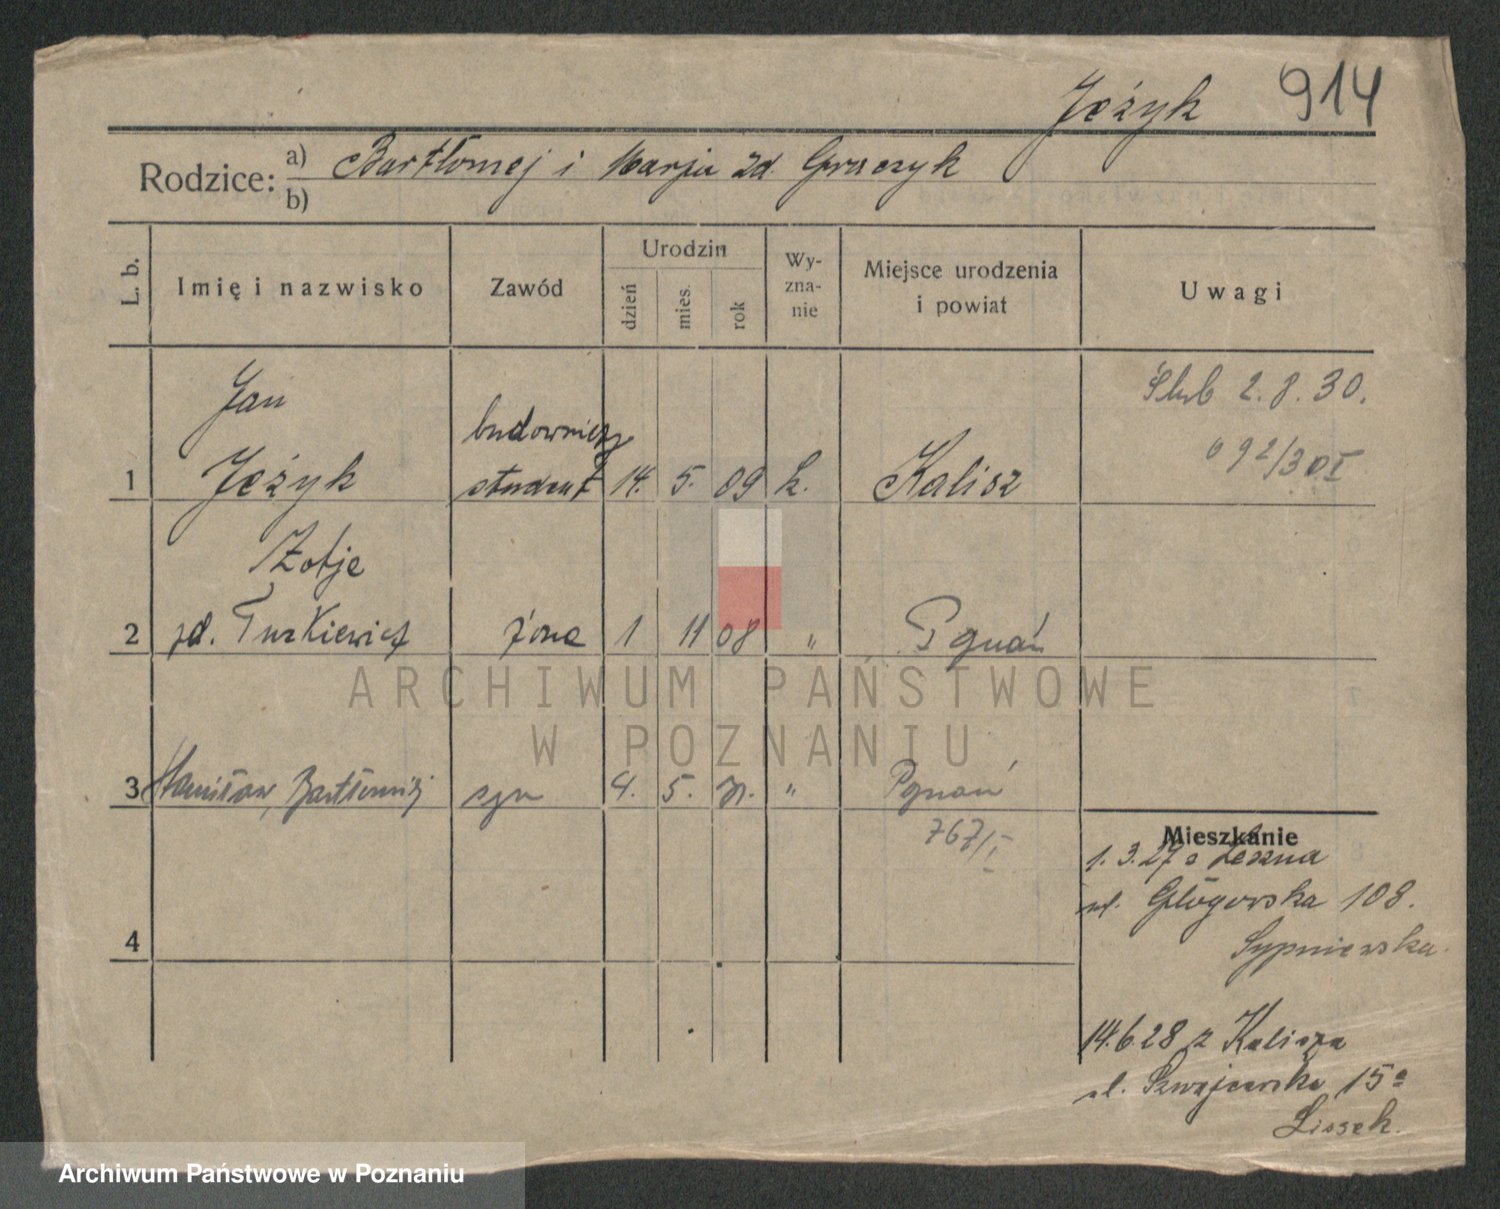 Jeżyk 914
Rodzice: a) Bartłomej i Marja zd. Graczyk
b)
L. b.
Imię i nazwisko
Zawód
Urodzin
dzień
mies.
rok
Wy-
zna-
nie
Miejsce urodzenia
i powiat
Uwagi
Jan
budowniczy
Ślub 2.8.30.
1 Jeżyk student 14. 5. 09 k. Kalisz
692/30 I
Zofje
2 zd. Turkiewicz żona 1 11 08 " Poznań
ARCHIWUM PAŃSTWOWE
W POZNANIU
3 Stanisław, Bartłomiej syn 4. 5. 31. " Poznań
767/I
Mieszkanie
1. 3. 27 z Leszna
ul. Głógowska 108.
Sypniewska.
4
14.6.28 z Kalisza
ul. Szwajcarska 15a
Lissek.
Archiwum Państwowe w Poznaniu